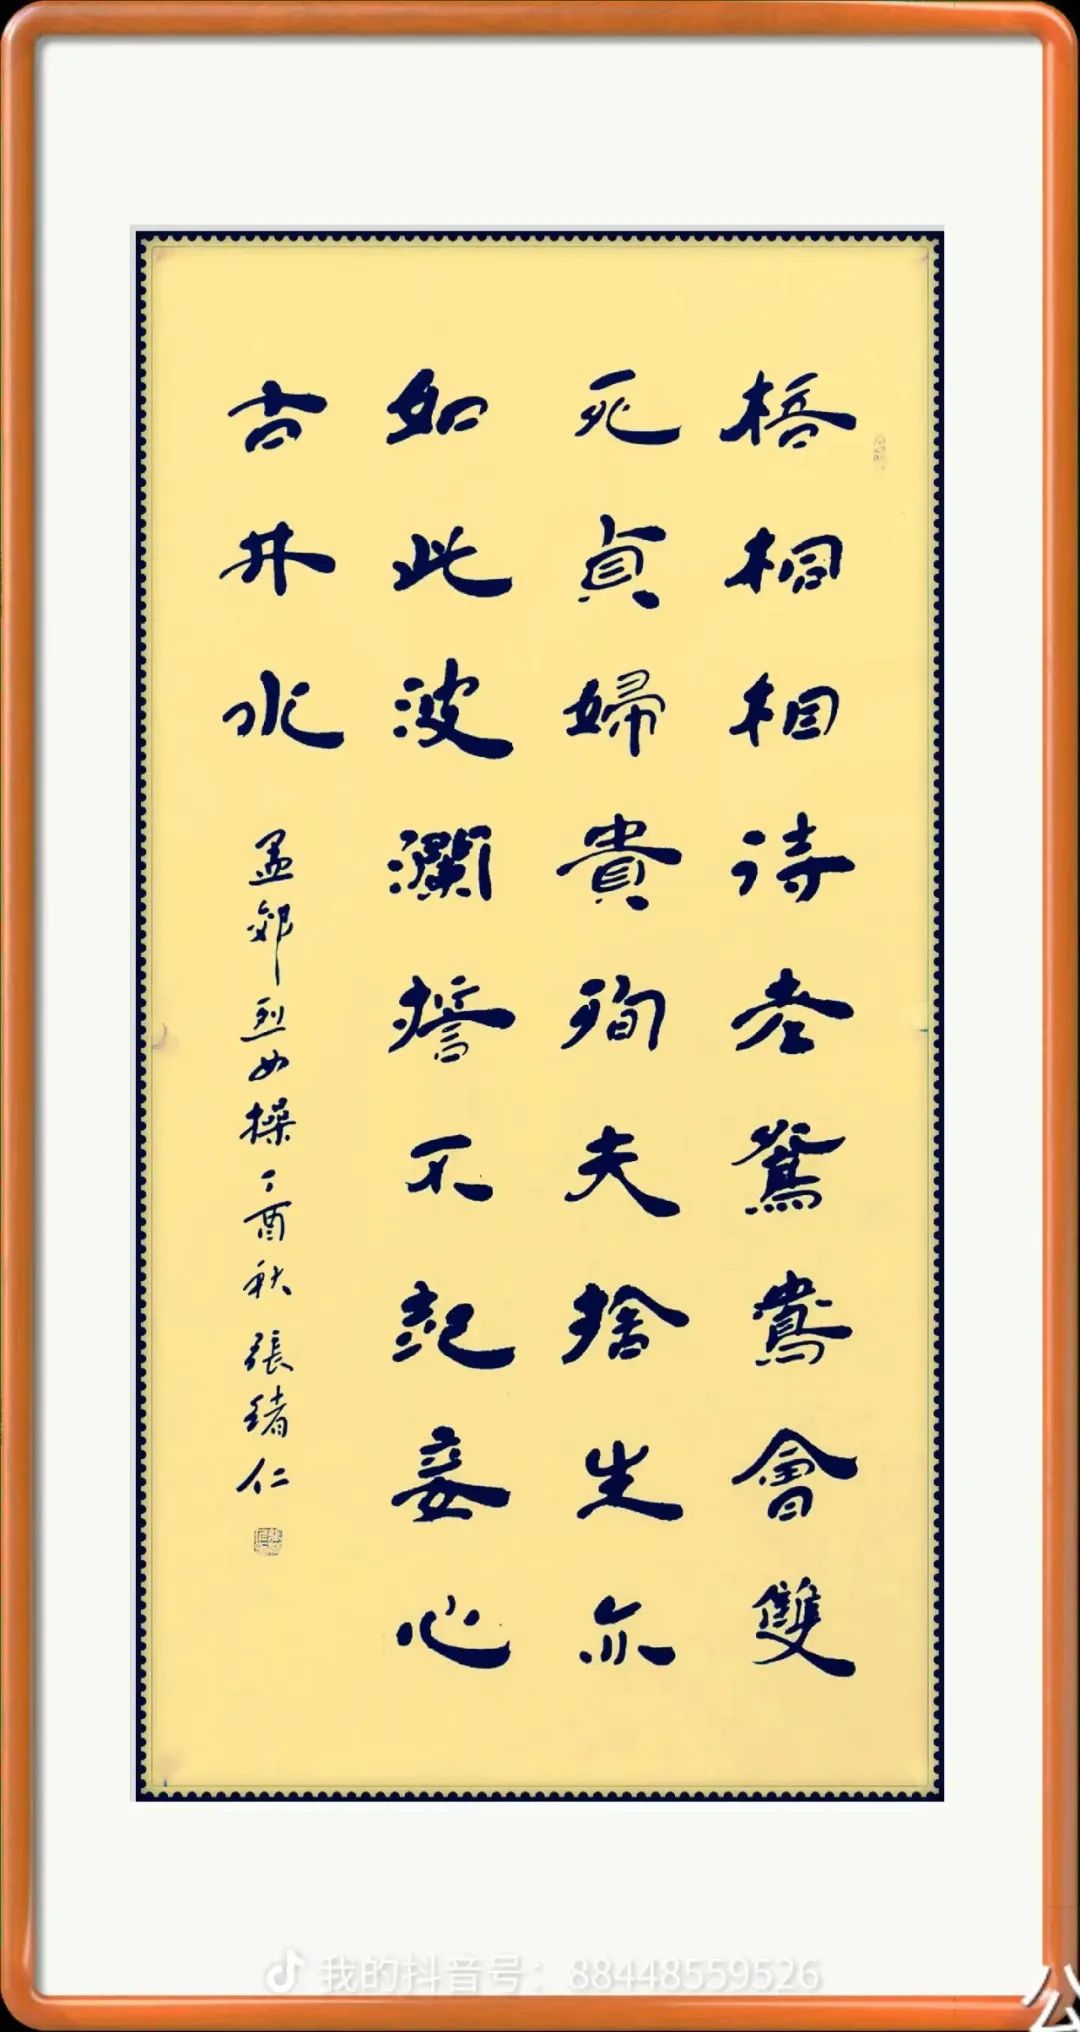 梧桐相待老鴛鴦會雙
死貞婦貴殉夫捨生亦
如此波瀾誓不起妾心
古井水
孟郊烈女操丁酉秋張緒仁
我的抖音号：88448559526
公